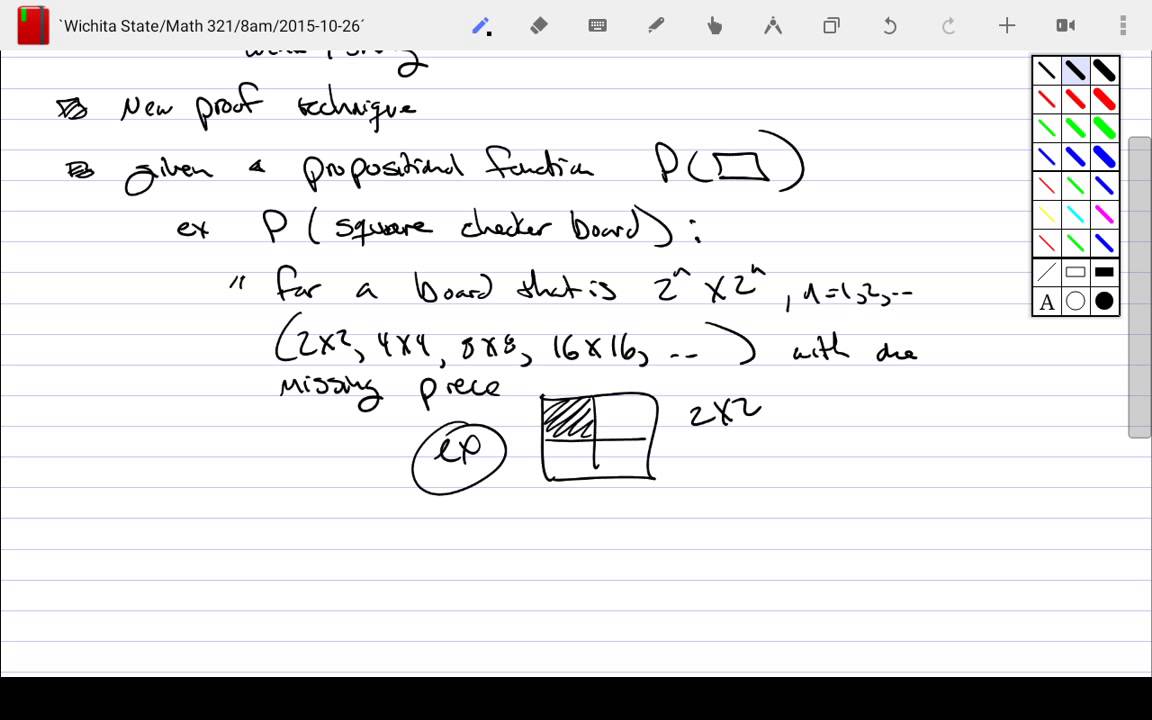 `Wichita State/Math 321/8am/2015-10-26´
New proof technique
given a propositional function P( )
ex P (square checker board):
" For a board that is 2^n x 2^n, n=1,2,--
(2x2, 4x4, 8x8, 16x16, --) with one
missing piece
ex 2x2
A